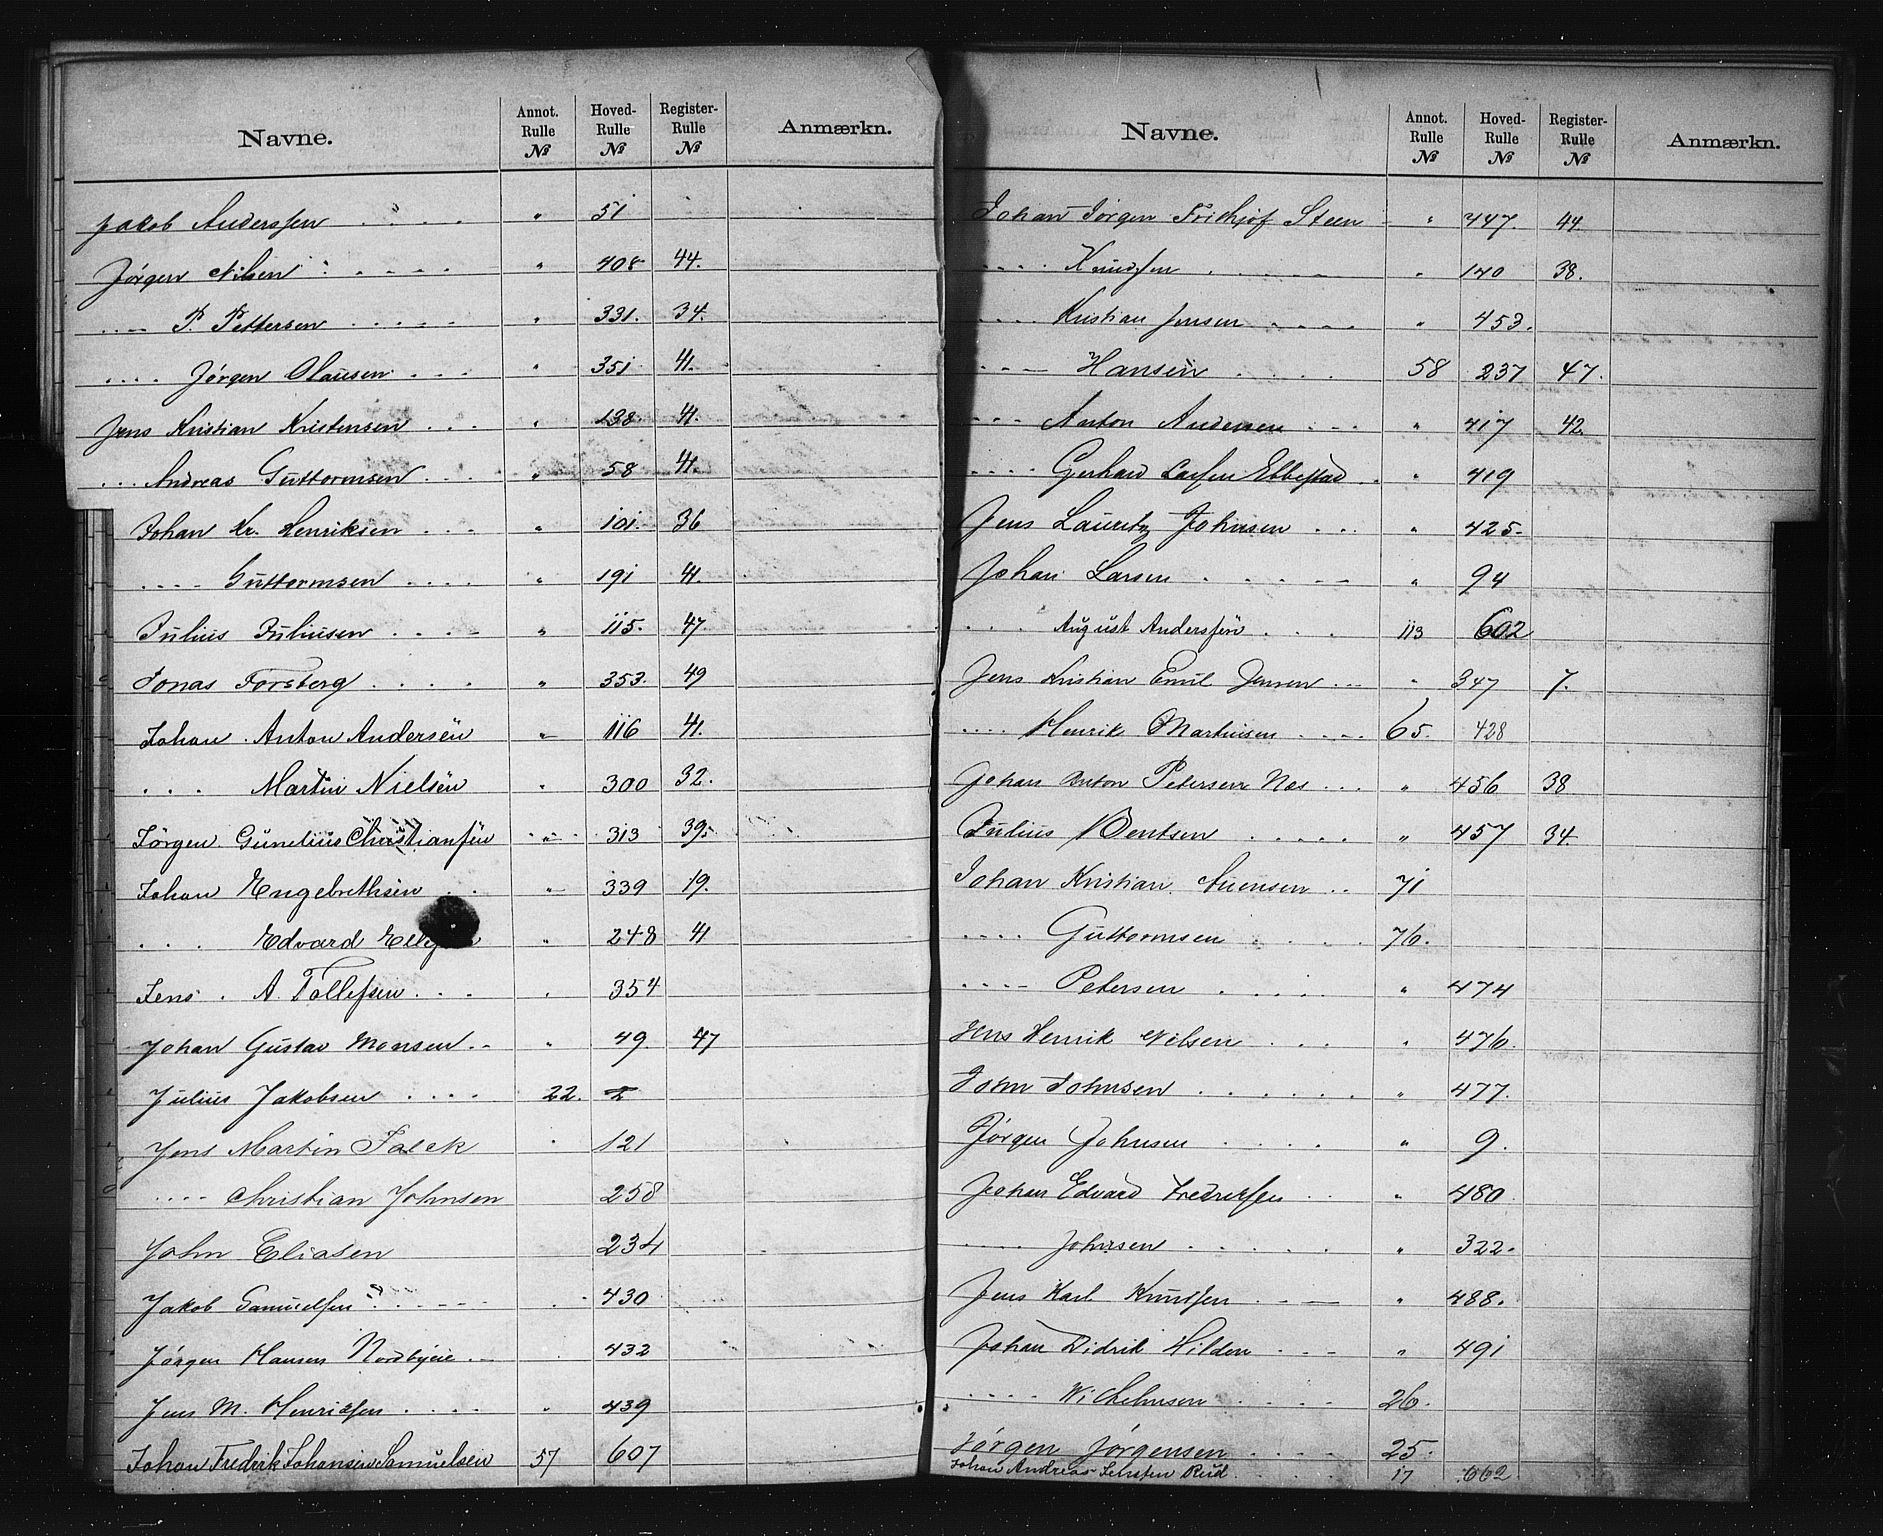 Navne. Annot. Rulle № Hoved- Rulle № Register- Rulle № Anmærkn.
Jakob Anderssen . . . . " 51
Jørgen Nilsen . . . . . " 408 44.
.... P. Pettersen . . . . . " 331. 34.
.... Jørgen Olausen . . . " 351 41.
Jens Kristian Kristensen . . . " 138. 41.
... Andreas Guttormsen . . . . " 58 41.
Johan Kr. Henriksen . . . " 101. 36
.... Guttormsen . . . . " 191 41.
Julius Juliusen . . . . " 115. 47.
Jonas Forsberg . . . . " 353. 49
Johan . Anton Andersen " 116 41.
. . . Martin Nielsen " 300 32.
Jørgen Gunelius Christiansen " 313 39.
Johan Engebrethsen . . " 339 19.
. . . Edvard " 248 41
Jens . A. Tollefsen . . . " 354
Johan Gustav Monsen . . " 49. 47
Julius Jakobsen . . . . 22. 2
Jens Martin Falck " 121
.... Christian Johnsen 258
John Eliasen 234
Jakob Samuelsen . . . . . 430
Jørgen Hansen Nordbyeie . . 432
Jens M. Henriksen . . . . " 439
Johan Fredrik Johansen Samuelsen 57 607
Navne. Annot. Rulle № Hoved- Rulle № Register- Rulle № Anmærkn.
Johan Jørgen Fridthjof Steen " 447. 44.
.... Knudsen . . . . . " 140 38.
.... Kristian Jensen . . . . " 453.
.... Hansen . . . . 58 237 47.
... Anton Andersen . . . " 417 42
.... Gerhard Larsen Ebbestad . . " 419
Jens Lauritz Johnsen . . . " 425.
Johan Larsen . . . . . " 94
.... August Anderssen . . . 113 602
Jens Kristian Emil Jensen . . . " 347 7.
.... Henrik Martinsen . . . . 65. 428
Johan Anton Petersen Næs . . . " 456 38
Julius Bentsen . . . . . " 457 34.
Johan Kristian Svensen . . 71
.... Guttormsen . . . . 76.
.... Petersen . . . . " 474
Jens Henrik Nilsen . . . " 476.
John Johnsen . . . . . . " 477.
Jørgen Johnsen . . . . " 9.
Johan Edvard Fredriksen . . " 480.
.... Johnsen . . . . . " 322.
Jens Karl Knudsen . . . " 488.
Johan Didrik Hilden . . . " 491
.... Wilhelmsen . . . . 26.
Jørgen Jørgensen . . . . 25.
Johan Andreas Rud . . . . 17 662